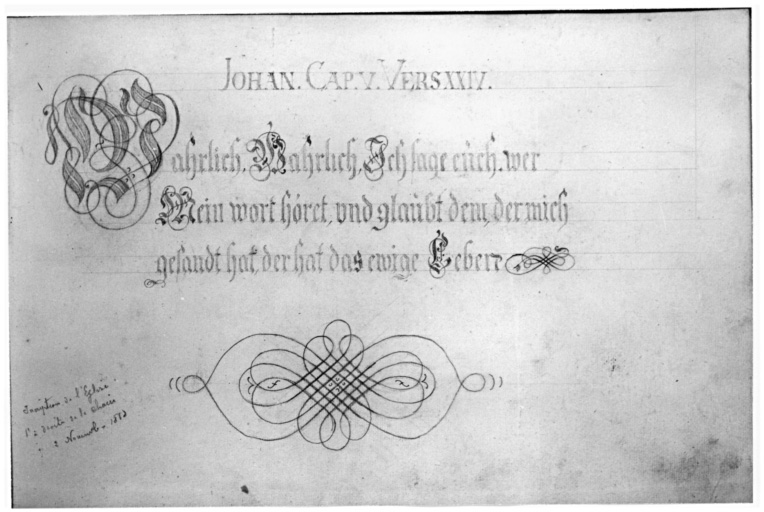 JOHAN. CAP. V. VERS XXIV.
Wahrlich, Wahrlich, Ich sage euch. wer
Mein wort höret, und glaubt dem, der mich
gesandt hat, der hat das ewige Leben
Inscription de l'Eglise
1° à droite de la chaire
2 Novemb. 1883